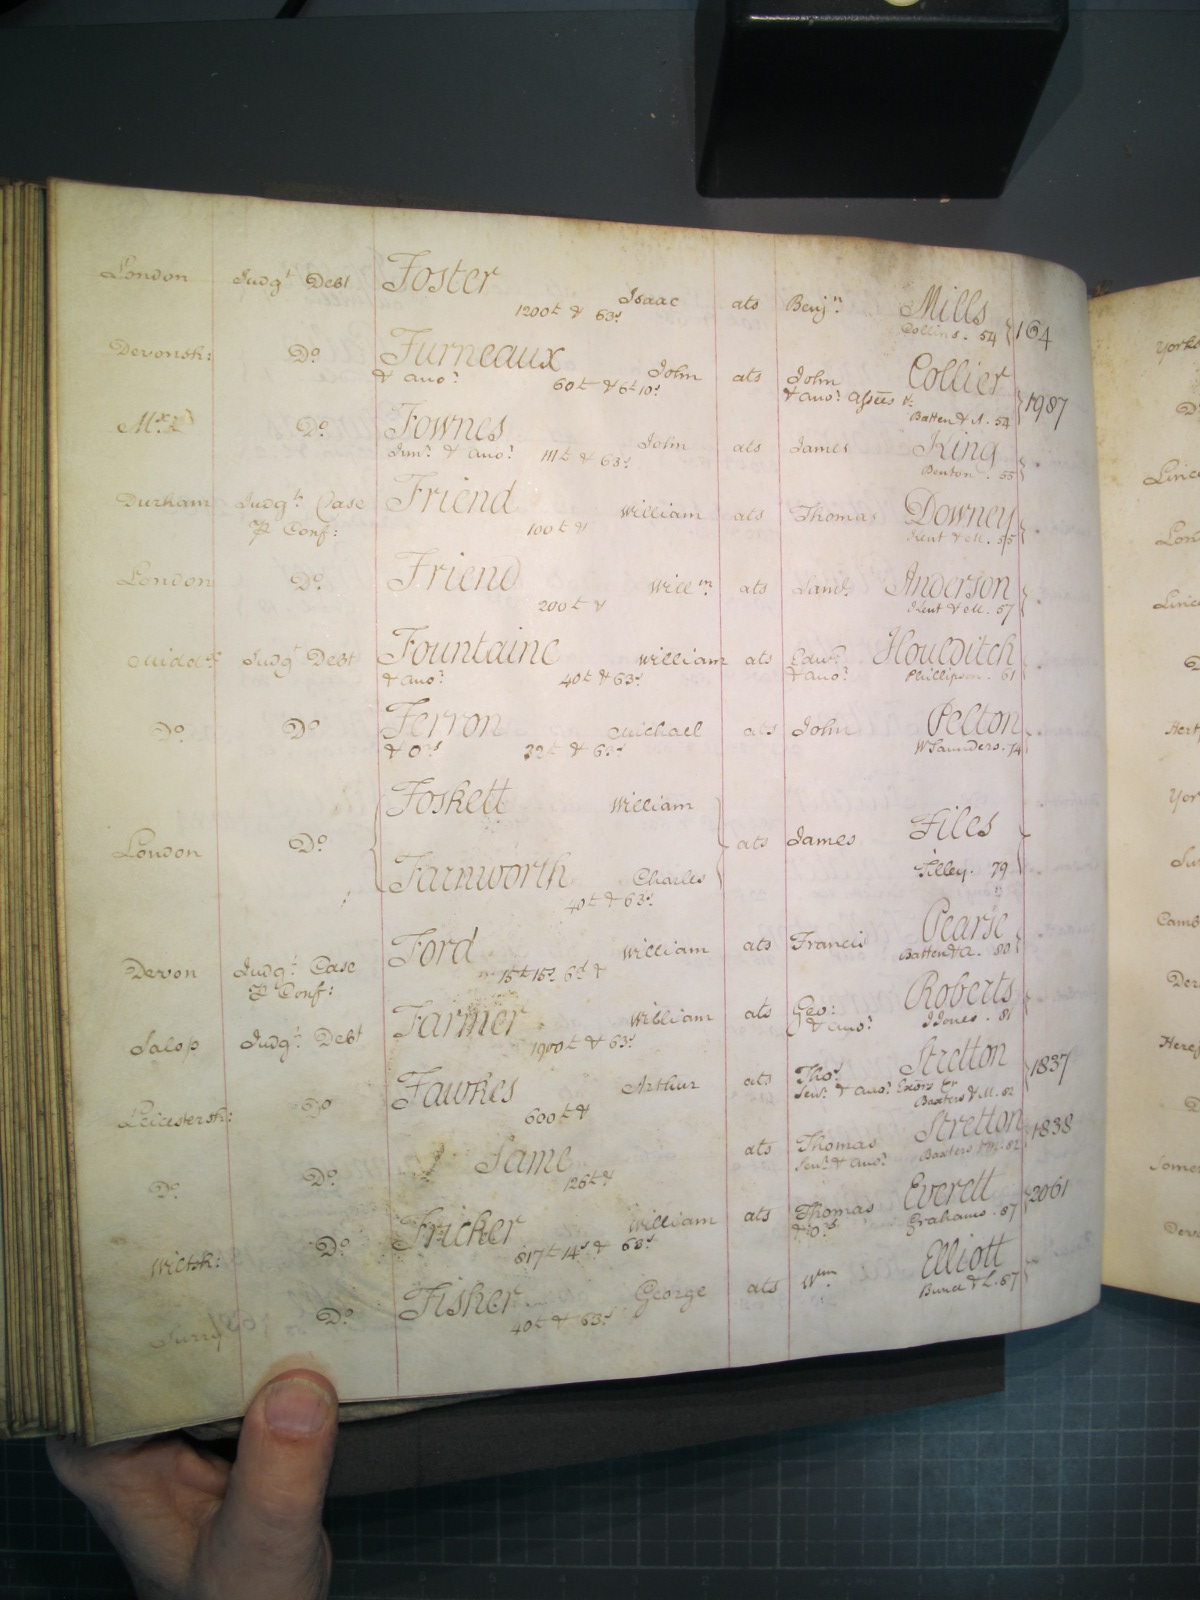 London Judgt Debt Foster Isaac ats Benjn Mills
1200£ & 63s Collins. 54 } 164
Devonsh: Do Furneaux John ats John Collier
& ano: 60£ & 6£ 10s & ano: Assees &c Batten & A. 54 } 1987
Mx Do Fownes John ats James King
Junr & ano: 111£ & 63s Benton. 55
Durham Judgt Case Friend William ats Thomas Downey
P Conf: 100£ & Kent & M. 55
London Do Friend Willm ats Saml Anderson
200£ & Kent & M. 57
Middx Judgt Debt Fountaine William ats Edwd Houlditch
& ano: 40£ & 63s & ano: Phillipson. 61
Do Do Ferron Michael ats John Pelton
& Ors 32£ & 63s W Saunders. 74
Foskett William
London Do ats James Files
Farnworth Charles Tilley. 79
40£ & 63s
Devon Judgt Case Ford William ats Francis Pearse
P Conf: 15£ 15s 6d & Batten & A. 80
Salop Judgt Debt Farmer William ats Geo: Roberts
1900£ & 63s & ano: J Jones. 81
Leicestersh: Do Fawkes Arthur ats Thos Stretton
600£ & Senr & ano: Exors &c Baxters & M. 82 } 1837
Do Do Same ats Thomas Stretton
126£ & Senr & ano: Baxters & M. 82 } 1838
Wiltsh: Do Fricker William ats Thomas Everett
817£ 14s & 63s & Ors Grahams. 87 } 2061
Surry Do Fisher George ats Wm Elliott
40£ & 63s Bunce & L. 87
Yorks
D
Linc
Lon
Linc
D
Hert
Yor
Su
Camb
Der
Heref
D
Somer
Dev